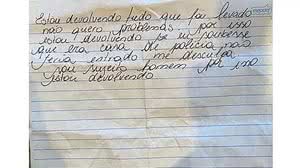 Estou devolvendo tudo que foi levado
não quero problemas por isso
estou devolvendo se eu soubesse
que era casa de policia não
teria entrado me desculpa
sou sujeito homem por isso
estou devolvendo